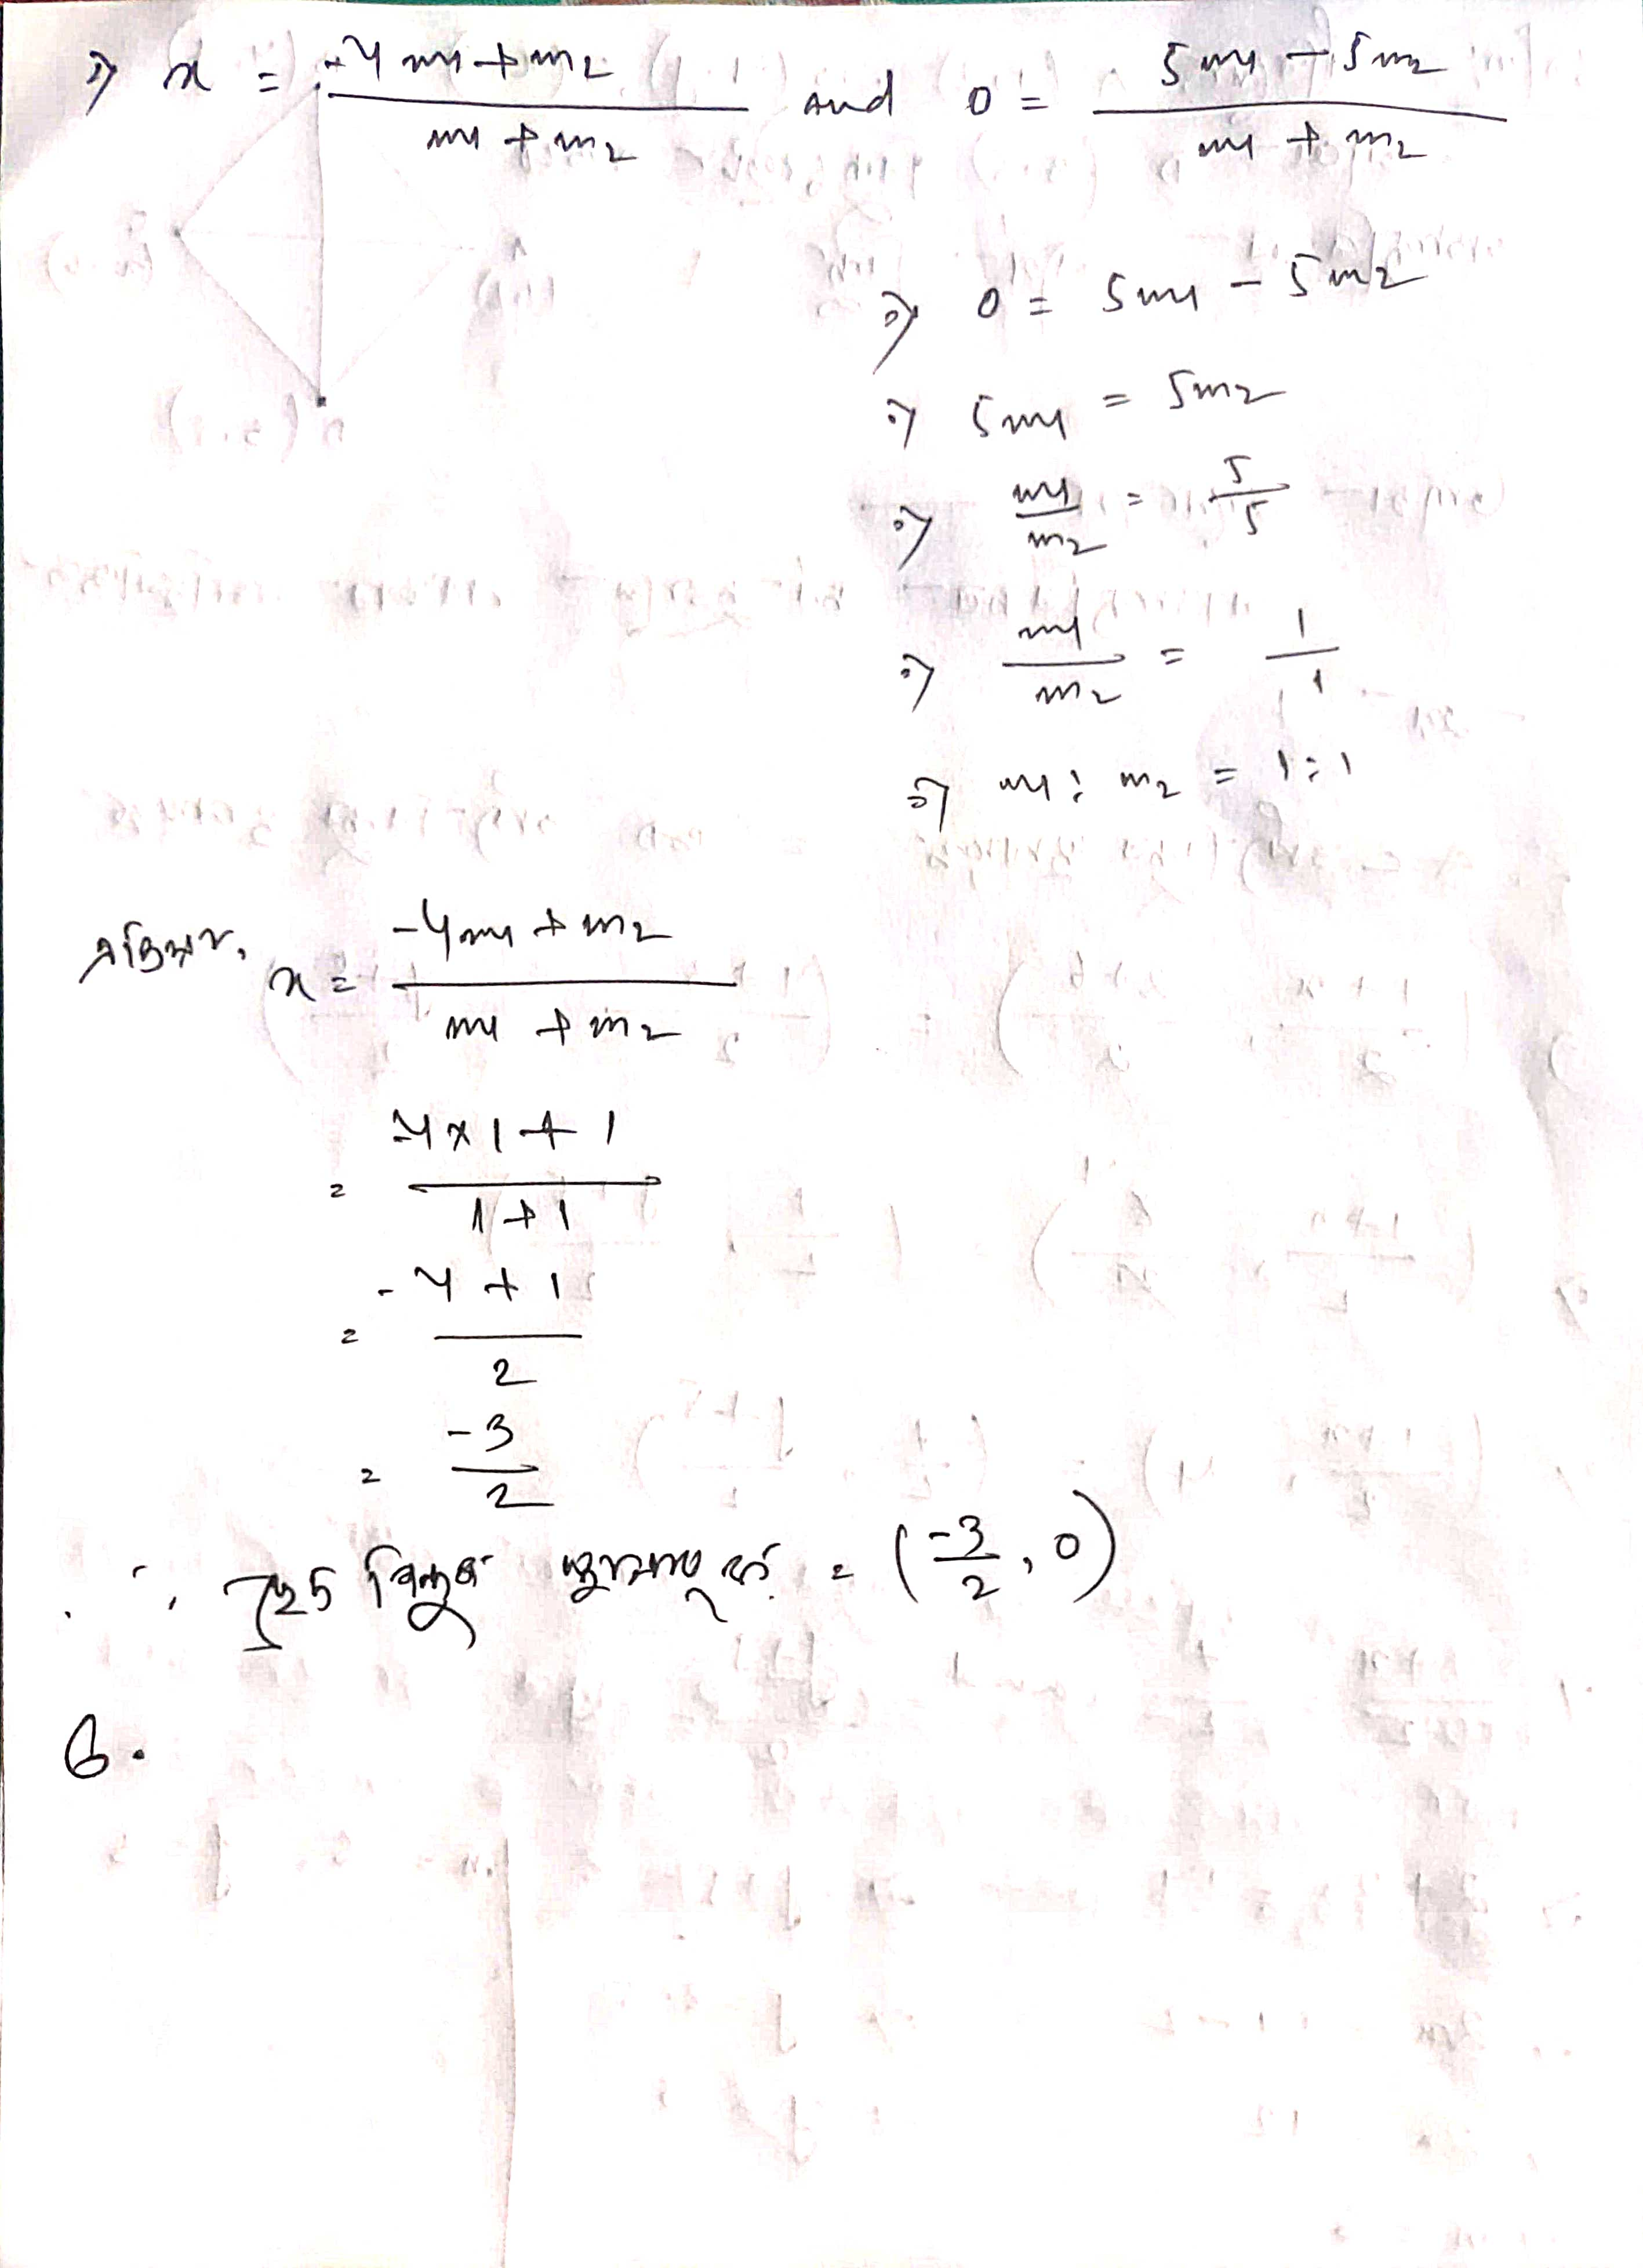 ⇒ x = (-4m1 + m2)/(m1 + m2) and 0 = (5m1 - 5m2)/(m1 + m2)
⇒ 0 = 5m1 - 5m2
⇒ 5m1 = 5m2
⇒ m1/m2 = 5/5
⇒ m1/m2 = 1/1
⇒ m1 : m2 = 1:1
x = (-4m1 + m2)/(m1 + m2)
= (-4×1+1)/(1+1)
= (-4+1)/2
= -3/2
∴ বিন্দুৰ = (-3/2, 0)
6.